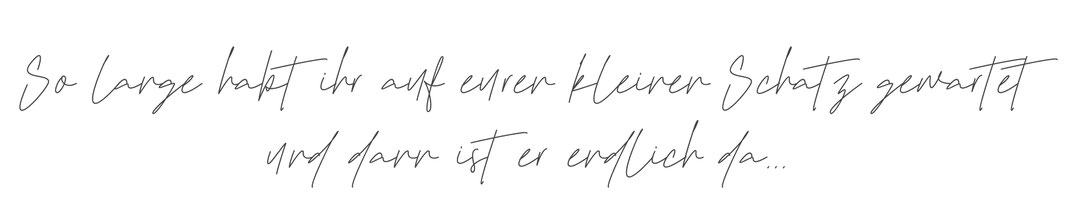 So lange habt ihr auf euren kleinen Schatz gewartet
und dann ist er endlich da...